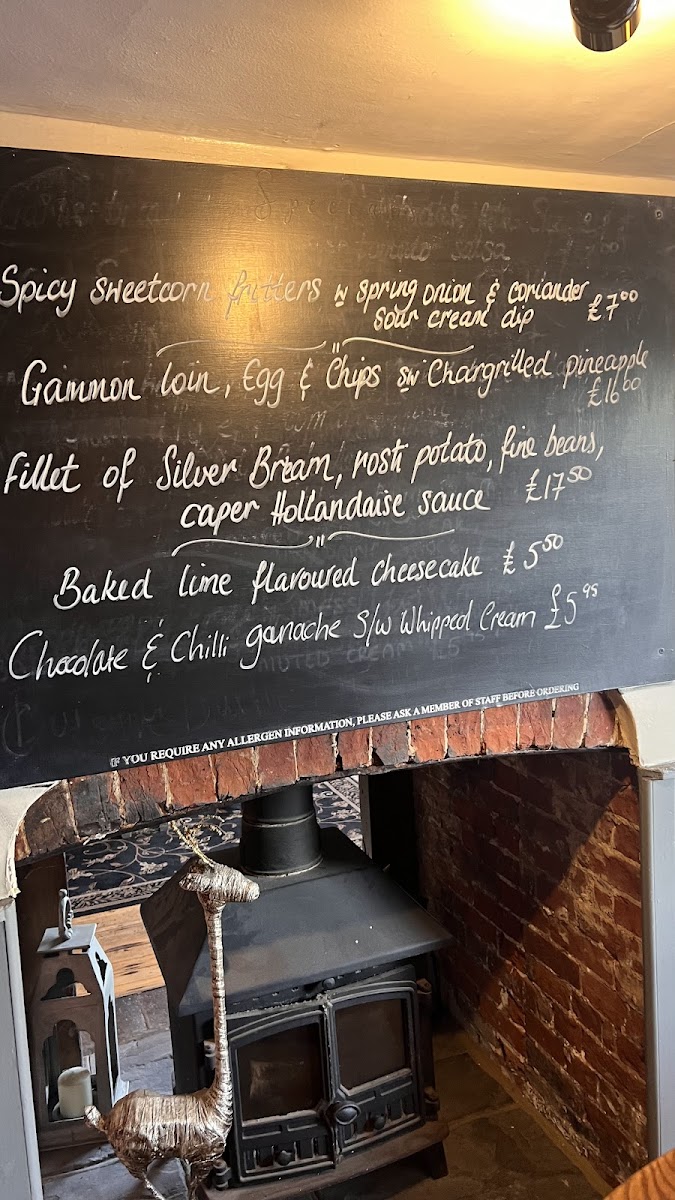 Spicy sweetcorn fritters w spring onion & coriander
sour cream dip £7⁰⁰
Gammon loin, Egg & Chips s/w Chargrilled pineapple
£16⁰⁰
Fillet of Silver Bream, rosti potato, fine beans,
caper Hollandaise sauce £17⁵⁰
Baked lime flavoured cheesecake £5⁵⁰
Chocolate & Chilli ganache s/w Whipped Cream £5⁹⁵
IF YOU REQUIRE ANY ALLERGEN INFORMATION, PLEASE ASK A MEMBER OF STAFF BEFORE ORDERING